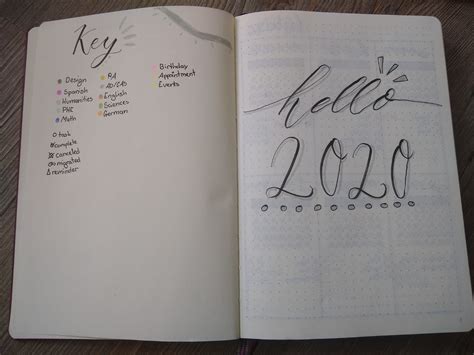 Key
Design
Spanish
Humanities
PHE
Math
RA
English
Sciences
German
Birthday
Appointment
Events
task
complete
canceled
migrated
reminder
hello
2020